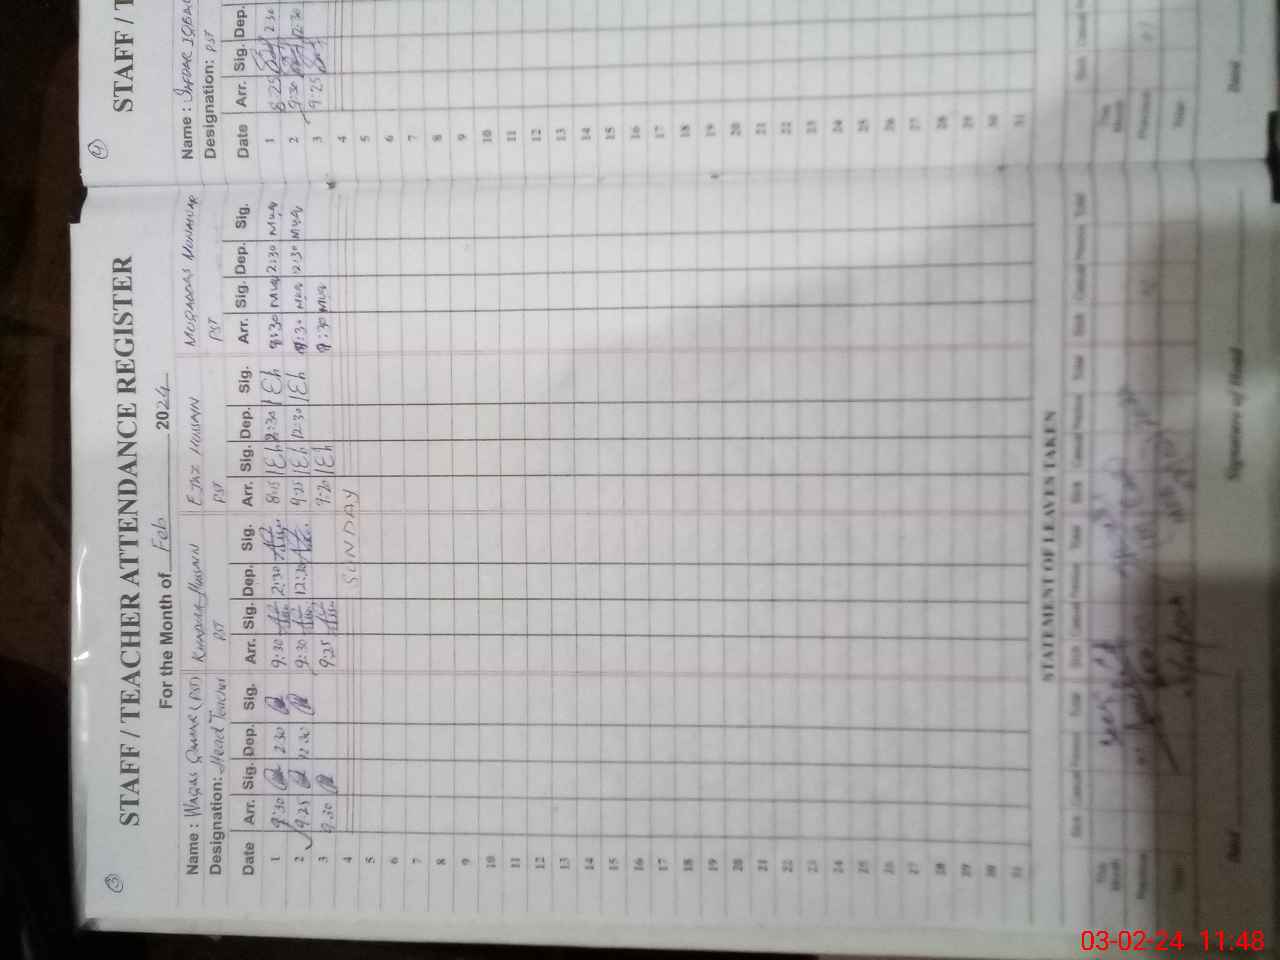 3
STAFF / TEACHER ATTENDANCE REGISTER
For the Month of Feb 2024
Name : Waqas Qamar (PST) Khadim Hussain Ejaz Hussain Muqaddas Munawar
Designation: Head Teacher PST PST PST
Date Arr. Sig. Dep. Sig. Arr. Sig. Dep. Sig. Arr. Sig. Dep. Sig. Arr. Sig. Dep. Sig.
1 9:30 2:30 9:30 2:30 8:15 Eh 2:30 Eh 8:30 MUQ 2:30 MUQ
2 9:25 12:30 9:30 12:30 9:25 Eh 12:30 Eh 9:30 MUQ 12:30 MUQ
3 9:30 9:25 9:20 Eh 9:30 MUQ
4 SUNDAY
5
6
7
8
9
10
11
12
13
14
15
16
17
18
19
20
21
22
23
24
25
26
27
28
29
30
31
STATEMENT OF LEAVES TAKEN
Sick Casual Previous Total Sick Casual Previous Total Sick Casual Previous Total Sick Casual Previous Total
This Month
Previous
Total
Date Signature of Head
4
STAFF / T
Name :
Designation: PST
Date Arr. Sig. Dep.
1 8:25 2:30
2 9:30 12:30
3 9:25
4
5
6
7
8
9
10
11
12
13
14
15
16
17
18
19
20
21
22
23
24
25
26
27
28
29
30
31
Sick
This Month
Previous
Total
Date
03-02-24 11:48